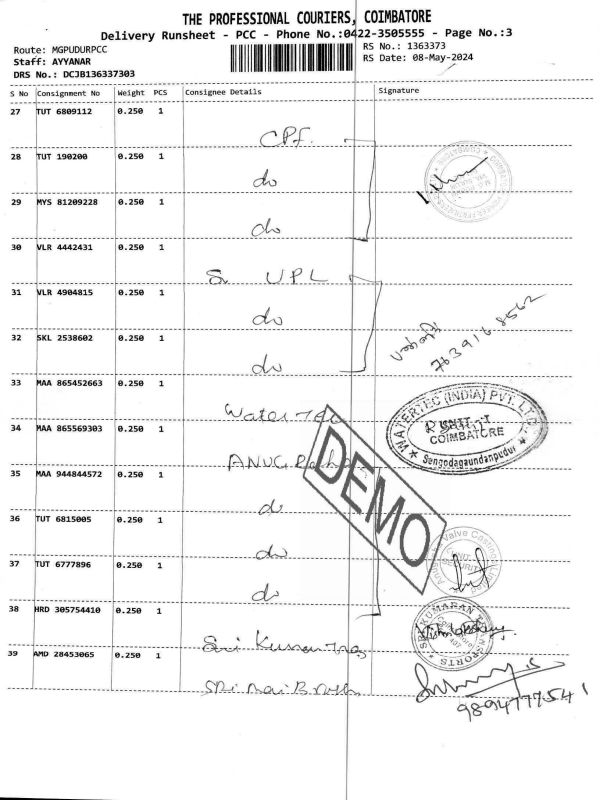 THE PROFESSIONAL COURIERS, COIMBATORE
Delivery Runsheet - PCC - Phone No.:0422-3505555 - Page No.:3
Route: MGPUDURPCC
RS No.: 1363373
Staff: AYYANAR
RS Date: 08-May-2024
DRS No.: DCJB136337303
S No Consignment No Weight PCS Consignee Details Signature
27 TUT 6809112 0.250 1
CPF.
28 TUT 190200 0.250 1
do
29 MYS 81209228 0.250 1
do
30 VLR 4442431 0.250 1
UPL
31 VLR 4904815 0.250 1
do
32 SKL 2538602 0.250 1
do
7639168562
33 MAA 865452663 0.250 1
Water Tec
WATERTEC (INDIA) PVT. LTD.
UNIT-I
COIMBATORE
Sengodagaundanpudur
34 MAA 865569303 0.250 1
ANUG
DEMO
35 MAA 944844572 0.250 1
do
36 TUT 6815005 0.250 1
do
Valve Casting
SECURITY
37 TUT 6777896 0.250 1
do
38 HRD 305754410 0.250 1
Sri Kumaran
39 AMD 28453065 0.250 1
Sri Sai
9894777541